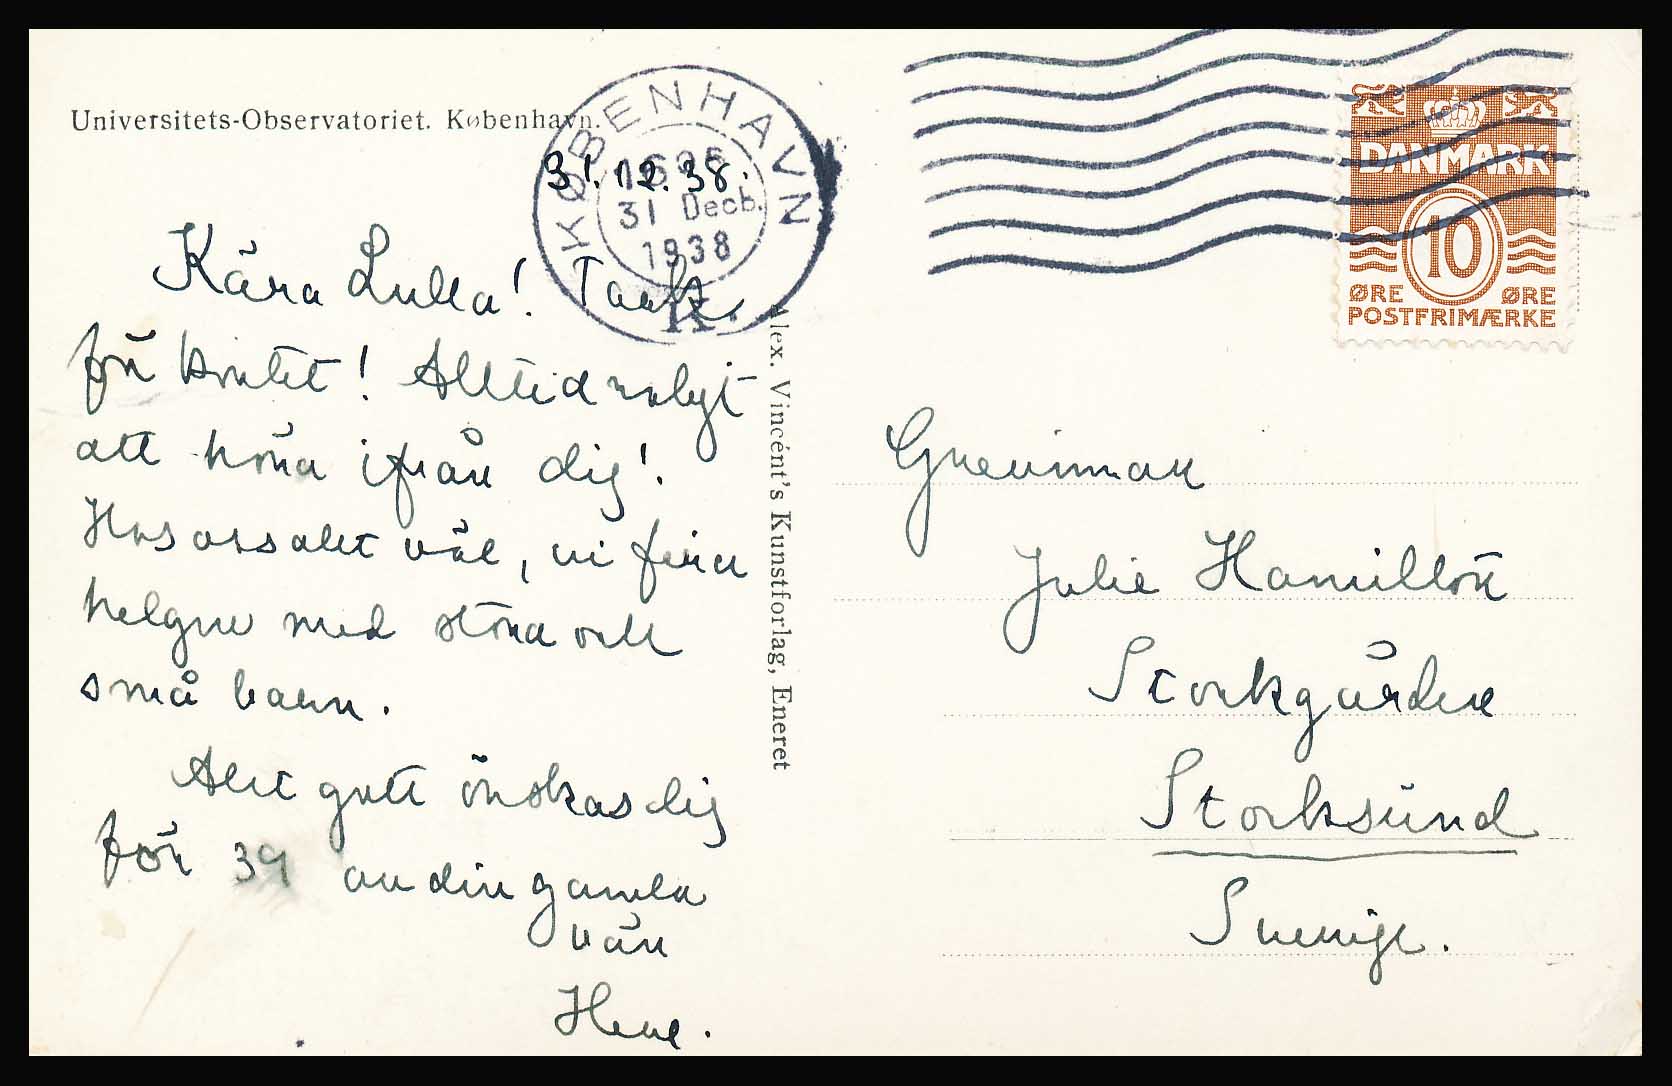 Universitets-Observatoriet. København.
KØBENHAVN
31 Decb.
1938
K.
31.12.38.
Kära Lulla! Tack
för kortet! Alltid roligt
att höra ifrån dig!
Hos oss allt väl, vi fira
helgen med stora och
små barn.
Allt gott önskas dig
för 39 av din gamla
vän
Alex. Vincént's Kunstforlag, Eneret
DANMARK
10
ØRE ØRE
POSTFRIMÆRKE
Grevinnan
Julie Hamilton
Storkgården
Storksund
Sverige.